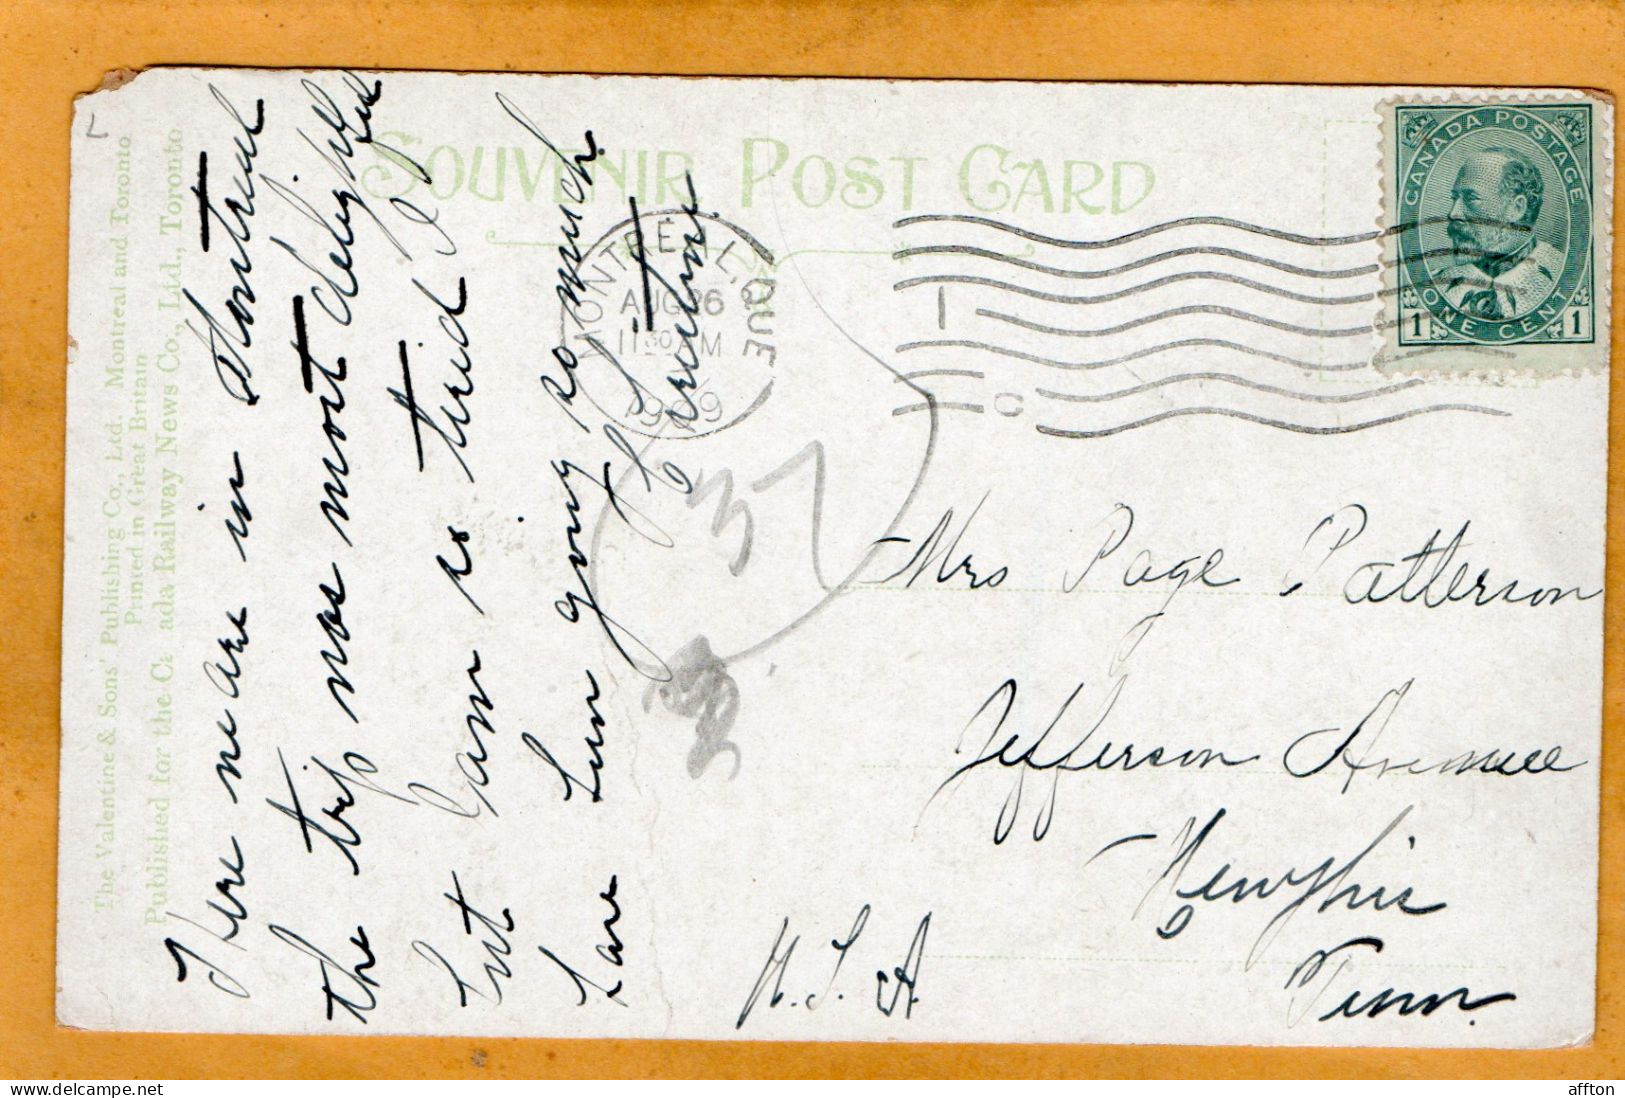 SOUVENIR POST CARD
The Valentine & Sons' Publishing Co., Ltd. Montreal and Toronto
Printed in Great Britain
Published for the Ca ada Railway News Co., Ltd., Toronto
Here we are in Montreal
the trip was most delightful
but I am so tired I
am going so much
MONTREAL, QUE
AUG 26
11 30 AM
1909
1 C
CANADA POSTAGE
ONE CENT
1 1
37
Mrs Page Patterson
Jefferson Avenue
Memphis
Tenn.
U. S. A.
affton